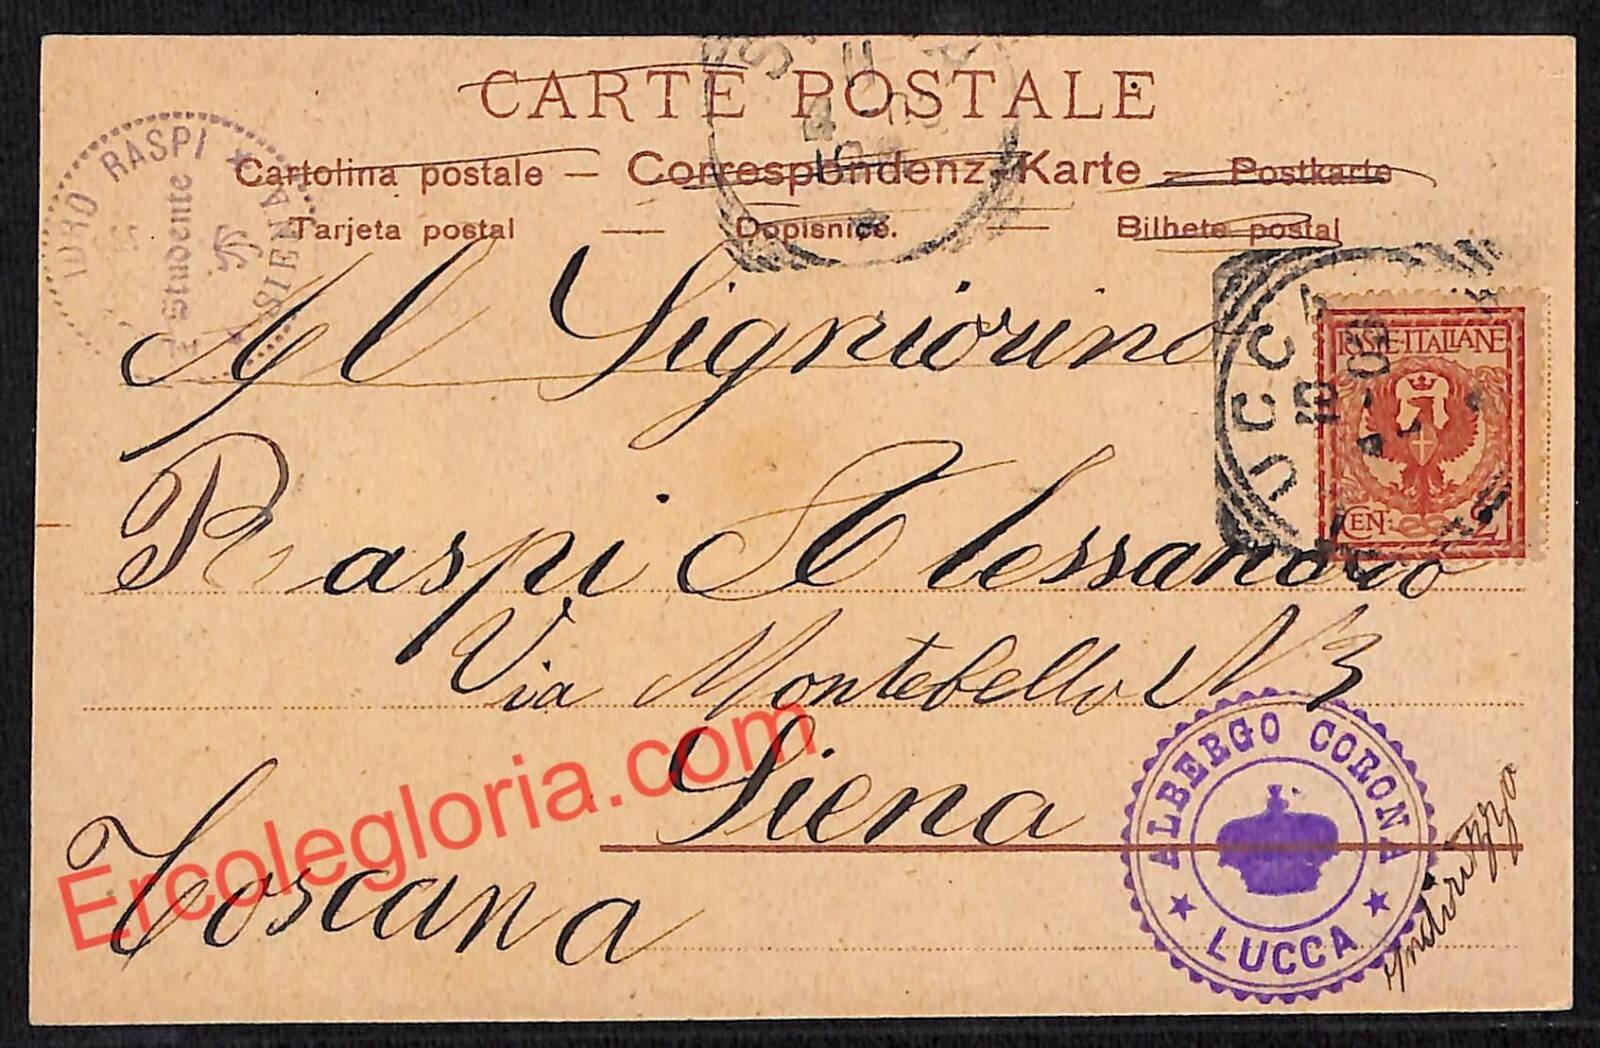 CARTE POSTALE
Cartolina postale — Correspondenz-Karte — Postkarte
Tarjeta postal — Dopisnice. — Bilhete postal
IDRO RASPI
Studente
SIENA
LUCCA
POSTE·ITALIANE
CEN. 2
Al Signiorino
Raspi Alessandro
Via Montebello N 3
Siena
Toscana
ALBERGO CORONA
LUCCA
Indirizzo
Ercolegloria.com